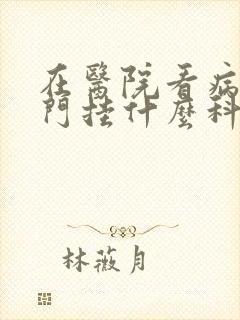 在醫院看病
門挂什麼科
林薇月